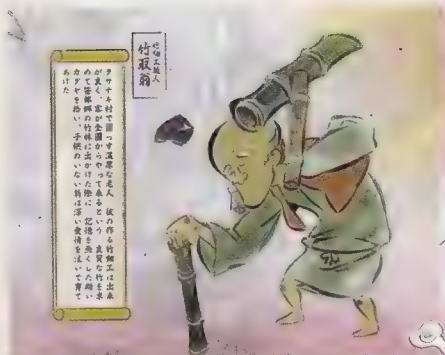 竹細工職人
竹取翁
クサナギ村で暮らす温厚な老人 彼の作る竹細工は出来
が良く、客が全国からやって来るという 良質な竹を求
めて笹部郷の竹林に出かけた際に 記憶を無くした幼い
カグヤを拾い、子供のいない翁は深い愛情を注いで育て
あげた